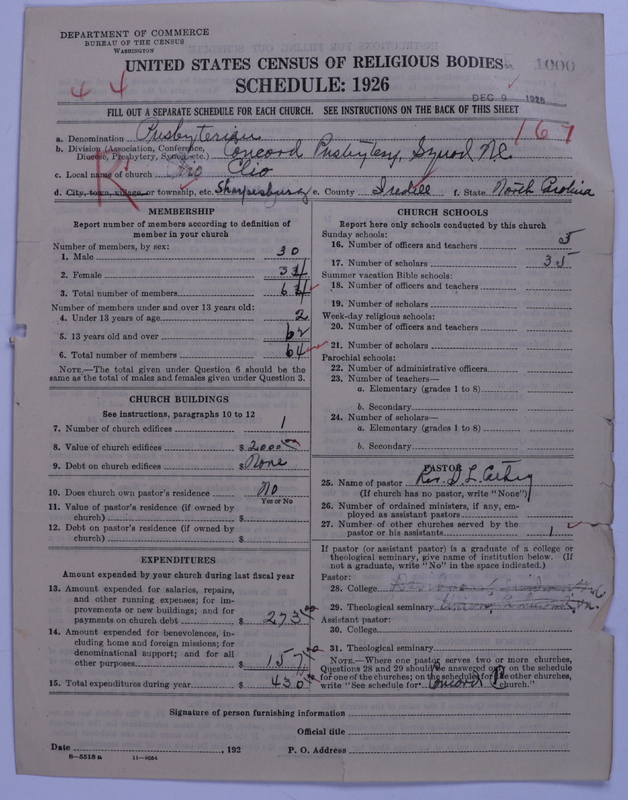 DEPARTMENT OF COMMERCE
BUREAU OF THE CENSUS
WASHINGTON
UNITED STATES CENSUS OF RELIGIOUS BODIES
1000
SCHEDULE: 1926
4 4
DEC 9 1926
FILL OUT A SEPARATE SCHEDULE FOR EACH CHURCH. SEE INSTRUCTIONS ON THE BACK OF THIS SHEET
167
a. Denomination Presbyterian
b. Division (Association, Conference, Diocese, Presbytery, Synod, etc.) Concord Presbytery, Synod NC
R
c. Local name of church Clio
d. City, town, village, or township, etc. Sharpesburg e. County Iredell f. State North Carolina
MEMBERSHIP
Report number of members according to definition of
member in your church
Number of members, by sex:
1. Male 30
2. Female 34
3. Total number of members 64
Number of members under and over 13 years old:
4. Under 13 years of age 2
5. 13 years old and over 62
6. Total number of members 64
NOTE.—The total given under Question 6 should be
same as the total of males and females given under Question 3.
CHURCH BUILDINGS
See instructions, paragraphs 10 to 12
7. Number of church edifices 1
8. Value of church edifices $ 2000
9. Debt on church edifices $ None
10. Does church own pastor's residence No
Yes or No
11. Value of pastor's residence (if owned by
church) $
12. Debt on pastor's residence (if owned by
church) $
EXPENDITURES
Amount expended by your church during last fiscal year
13. Amount expended for salaries, repairs,
and other running expenses; for im-
provements or new buildings; and for
payments on church debt $ 273
14. Amount expended for benevolences, in-
cluding home and foreign missions; for
denominational support; and for all
other purposes $ 157
15. Total expenditures during year $ 430
CHURCH SCHOOLS
Report here only schools conducted by this church
Sunday schools:
16. Number of officers and teachers 5
17. Number of scholars 35
Summer vacation Bible schools:
18. Number of officers and teachers
19. Number of scholars
Week-day religious schools:
20. Number of officers and teachers
21. Number of scholars
Parochial schools:
22. Number of administrative officers
23. Number of teachers—
a. Elementary (grades 1 to 8)
b. Secondary
24. Number of scholars—
a. Elementary (grades 1 to 8)
b. Secondary
PASTOR
25. Name of pastor Rev. D. L.
(If church has no pastor, write "None")
26. Number of ordained ministers, if any, em-
ployed as assistant pastors
27. Number of other churches served by the
pastor or his assistants 1
If pastor (or assistant pastor) is a graduate of a college or
theological seminary, give name of institution below. (If
not a graduate, write "No" in the space indicated.)
Pastor:
28. College
29. Theological seminary
Assistant pastor:
30. College
31. Theological seminary
NOTE.—Where one pastor serves two or more churches,
Questions 28 and 29 should be answered only on the schedule
for one of the churches; on the schedules for the other churches,
write "See schedule for Concord church."
Signature of person furnishing information
Official title
Date , 192 P. O. Address
8—5518a 11—9054